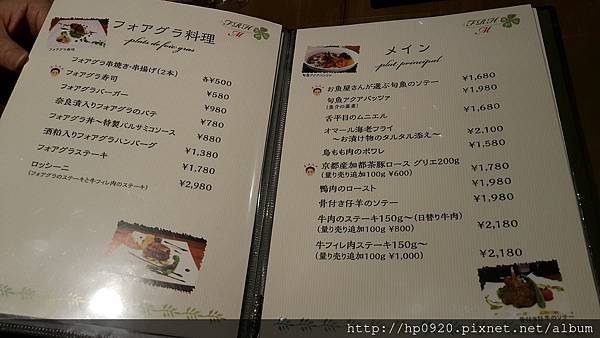 F.R.H
M
フォアグラ料理
plats de foie gras
フォアグラ寿司
フォアグラ串焼き・串揚げ(2本) 各¥500
フォアグラ寿司 ¥580
フォアグラバーガー ¥980
奈良漬入りフォアグラのパテ ¥780
フォアグラ丼~特製バルサミコソース ¥880
酒粕入りフォアグラハンバーグ ¥1,380
フォアグラステーキ ¥1,780
ロッシーニ ¥2,980
(フォアグラのステーキと牛フィレ肉のステーキ)
F.R.H
M
メイン
plat principal
旬魚アクアパッツァ
お魚屋さんが選ぶ旬魚のソテー ¥1,680
旬魚アクアパッツァ ¥1,980
(魚介の蒸煮)
舌平目のムニエル ¥1,680
オマール海老フライ ¥2,100
~お漬け物のタルタル添え~
鳥もも肉のポワレ ¥1,580
京都産加都茶豚ロース グリエ200g ¥1,780
(量り売り追加100g ¥600)
鴨肉のロースト ¥1,980
骨付き仔羊のソテー
牛肉のステーキ150g~(日替り牛肉) ¥2,180
(量り売り追加100g ¥800)
牛フィレ肉ステーキ150g~ ¥2,180
(量り売り追加100g ¥1,000)
骨付き仔羊のソテー
http://hp0920.pixnet.net/album